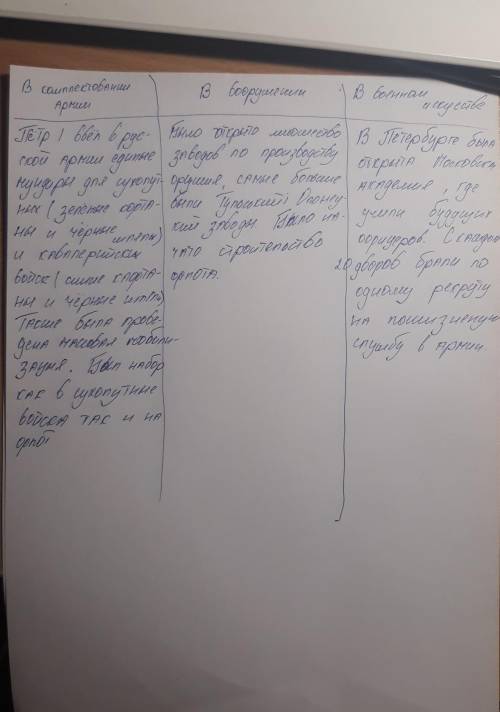 В комплектовании
армии
В вооружении
В военном
искусстве
Пётр I ввёл в рус-
ской армии единые
мундиры для сухопут-
ных (зелёные кафта-
ны и чёрные шляпы)
и кавалерийских
войск (синие кафта-
ны и чёрные шляпы)
Также была прове-
дена массовая мобили-
зация. Был набор
как в сухопутные
войска так и на
флот
Было открыто множество
заводов по производству
оружия, самые большие
были Тульский и
кий заводы. Было на-
чато строительство
флота.
В Петербурге была
открыта Московская
академия, где
учили будущих
офицеров. С каждых
20 дворов брали по
одному рекруту
на пожизненую
службу в армии.